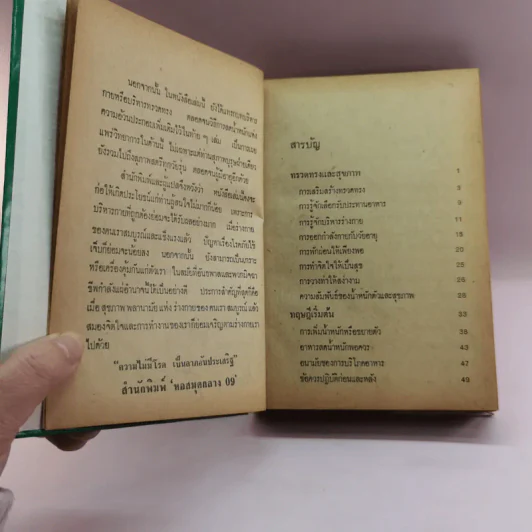 นอกจากนั้น ในหนังสือเล่มนี้ ยังได้แทรกบทบริหาร
กายหรือบริหารทรวดทรง ตลอดจนวิธีการลดน้ำหนักแห่ง
ความอ้วนประกอบเพิ่มเติมไว้ในท้าย ๆ เล่ม เป็นการเผย
แพร่วิทยาการในด้านนี้ ไม่เฉพาะแต่ท่านสุภาพบุรุษฝ่ายเดียว
ยังรวมไปถึงสุภาพสตรีทุกวัยรุ่น ตลอดจนผู้มีอายุอีกด้วย
สำนักพิมพ์และผู้แปลจึงหวังว่า หนังสือเล่มนี้คงจะ
ก่อให้เกิดประโยชน์แก่ท่านผู้สนใจไม่มากก็น้อย เพราะการ
บริหารกายที่ถูกต้องย่อมจะได้รับผลอย่างมาก เมื่อร่างกาย
ของคนเราสมบูรณ์และแข็งแรงแล้ว ปัญหาเรื่องโรคภัยไข้
เจ็บก็ย่อมจะน้อยลง นอกจากนั้น ยังสามารถเป็นเกราะ
หรือเครื่องคุ้มกันแก่ตัวเรา ในสมัยที่อันธพาลและพวกมิจฉา
ชีพกำลังแผ่อำนาจไปได้เป็นอย่างดี ประการสำคัญที่สุดก็คือ
เมื่อ สุขภาพ พลานามัย แห่ง ร่างกาย ของ คนเรา สมบูรณ์ แล้ว
สมองจิตใจและการทำงานของเราก็ย่อมเจริญตามร่างกายเรา
ไปด้วย
"ความไม่มีโรค เป็นลาภอันประเสริฐ"
สำนักพิมพ์ 'หอสมุดกลาง 09'
สารบัญ
ทรวดทรงและสุขภาพ 1
การเสริมสร้างทรวดทรง
การรู้จักเลือกรับประทานอาหาร
การรู้จักบริหารร่างกาย 11
การออกกำลังกายกับวัยอายุ
การพักผ่อนให้เพียงพอ
การทำจิตใจให้เป็นสุข 25
การวางท่าให้สง่างาม
ความสัมพันธ์ของน้ำหนักตัวและสุขภาพ
ทฤษฎีเริ่มต้น
การเพิ่มน้ำหนักหรือขยายตัว 39
อาหารลดน้ำหนักพอควร
อนามัยของการบริโภคอาหาร 47
ข้อควรปฏิบัติก่อนและหลัง 49